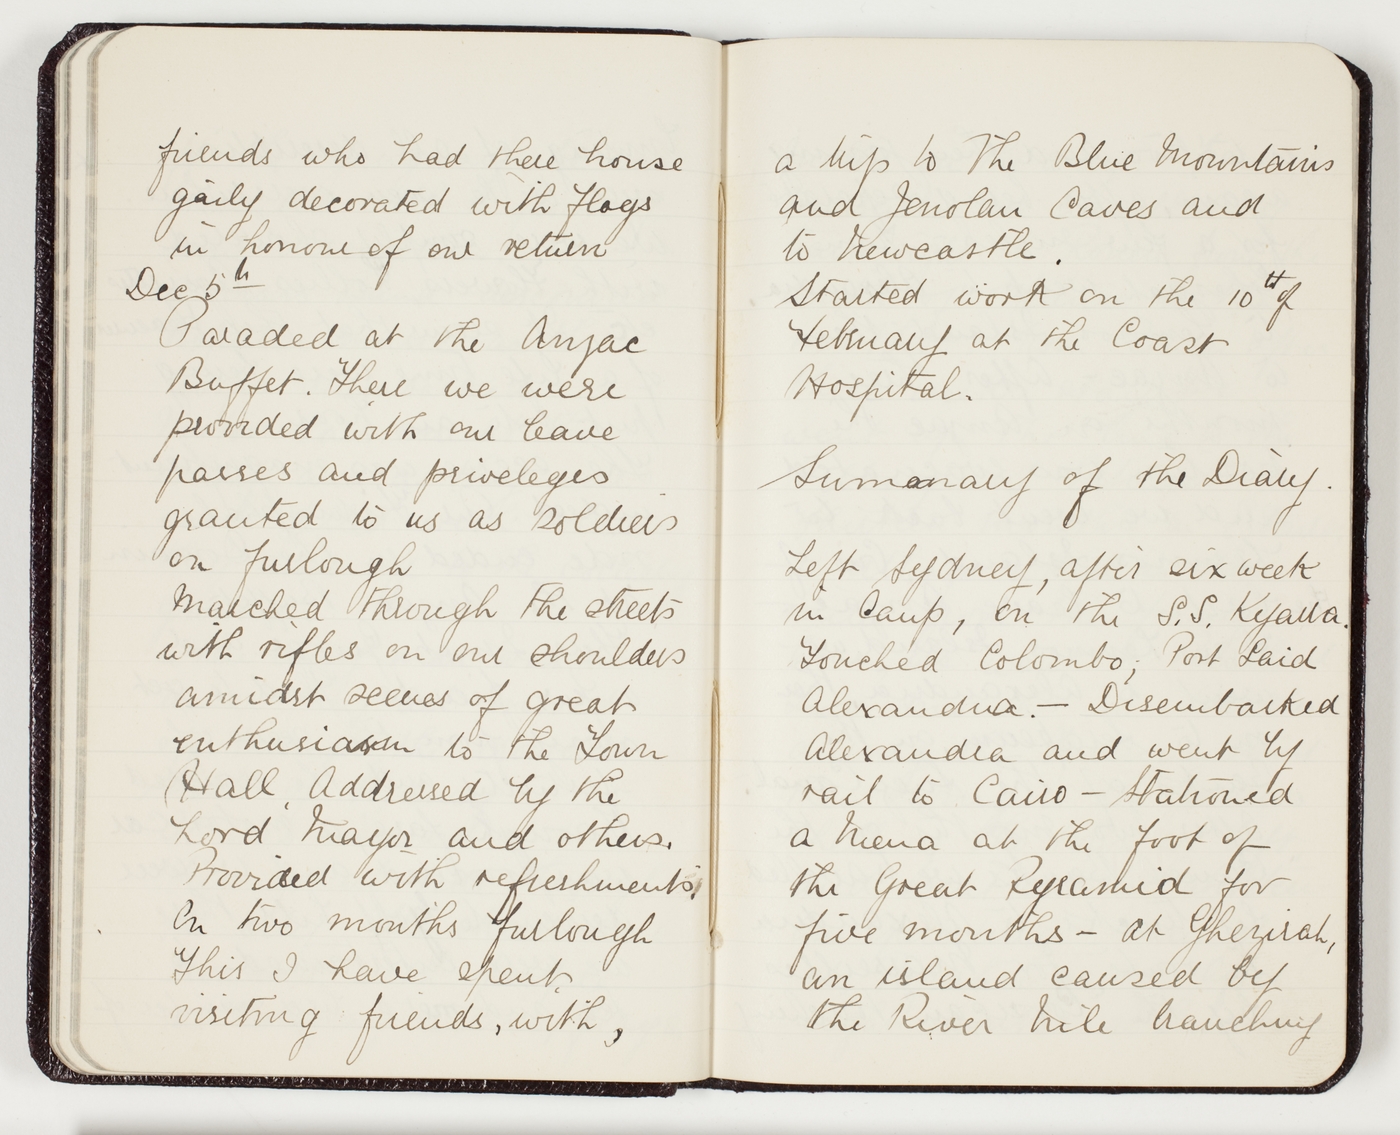 friends who had there house
gaily decorated with flags
in honour of our return
Dec 5th
Paraded at the Anzac
Buffet. There we were
provided with our leave
passes and priveleges
granted to us as soldiers
on furlough
Marched through the streets
with rifles on our shoulders
amidst scenes of great
enthusiasm to the Town
Hall, Addressed by the
Lord Mayor and others.
Provided with refreshments.
On two months furlough
This I have spent
visiting friends, with,
a trip to The Blue Mountains
and Jenolan Caves and
to Newcastle.
Started work on the 10th of
February at the Coast
Hospital.
Summary of the Diary.
Left Sydney, after six week
in Camp, on the S.S. Kyarra.
Touched Colombo, Port Said
Alexandria. — Disembarked
Alexandra and went by
rail to Cairo — Stationed
a Mena at the foot of
the Great Pyramid for
five months — at Ghezirah,
an island caused by
the River Nile branching